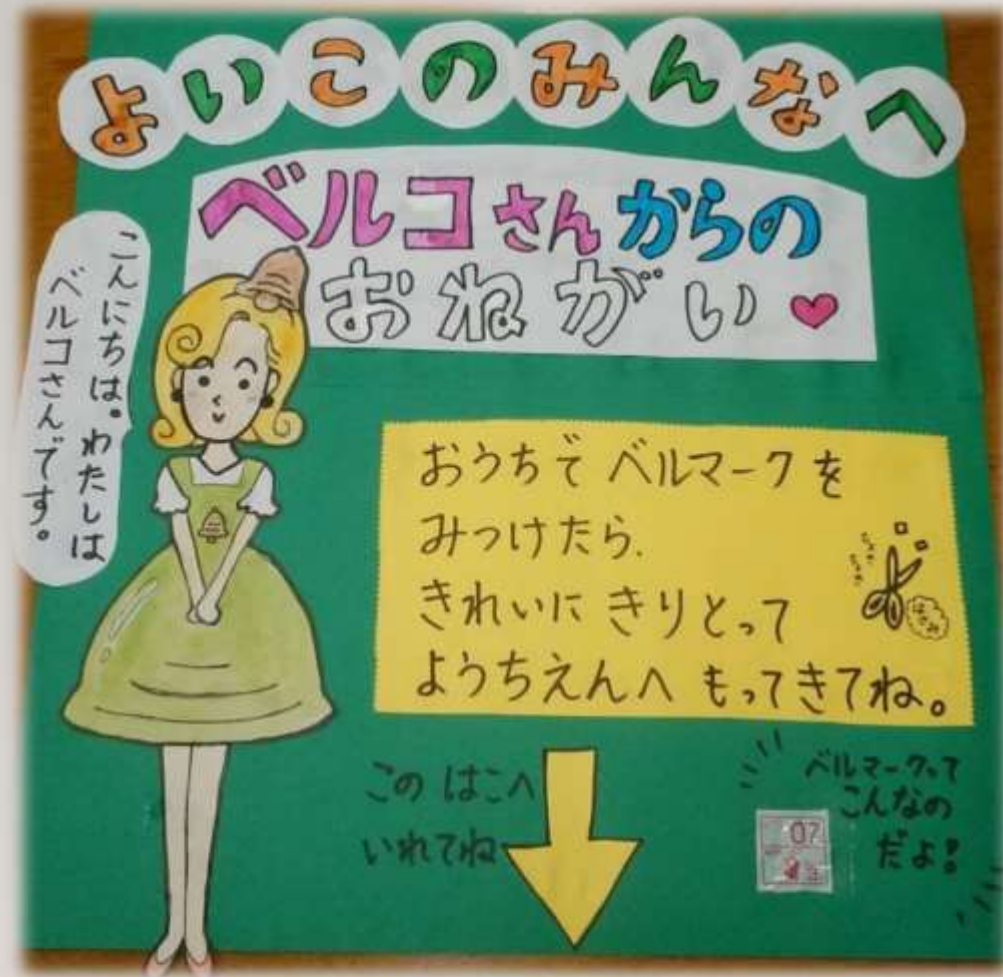 よいこのみんなへ
ベルコさんからの
おねがい♥
こんにちは。わたしは
ベルコさんです。
おうちで ベルマーク を
みつけたら、
きれいに きりとって
ようちえんへ もってきてね。
ちょき
ちょき
はさみ
この はこへ
いれてね
ベルマークって
こんなの
だよ!!
07